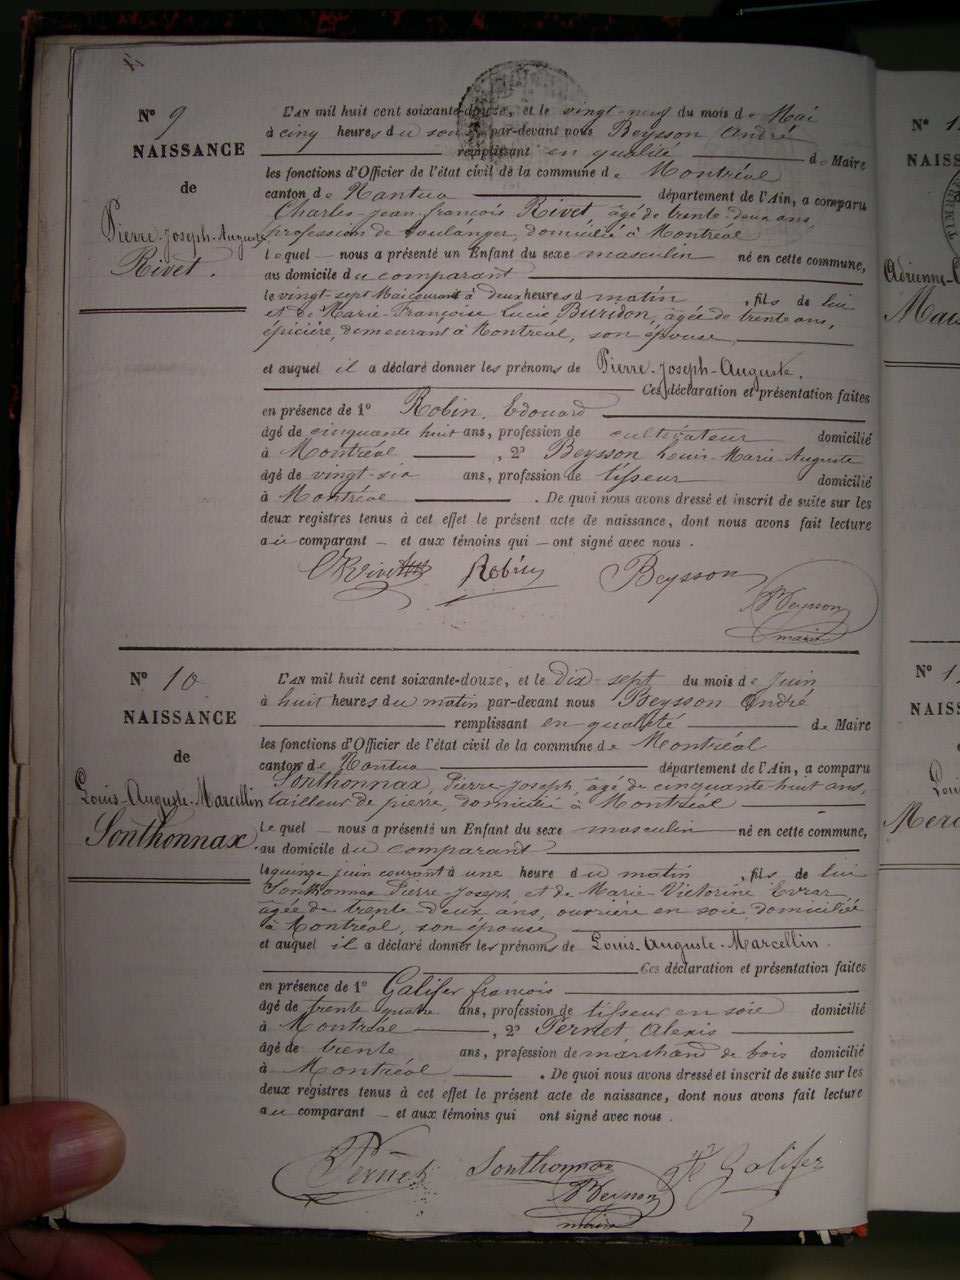 N° 9
NAISSANCE
de
Pierre-Joseph-Auguste
Rivet.
L'AN mil huit cent soixante-douze, et le vingt-neuf du mois de Mai
à cinq heures du soir par-devant nous Beysson André
remplissant en qualité de Maire
les fonctions d'Officier de l'état civil de la commune de Montréal
canton de Nantua département de l'Ain, a comparu
Charles-Jean-françois Rivet, âgé de trente-deux ans,
profession de boulanger, domicilié à Montréal
lequel nous a présenté un Enfant du sexe masculin né en cette commune,
au domicile du comparant
le vingt-sept Mai courant à deux heures du matin, fils de lui
et de Marie-Françoise Lucie Buridon, âgée de trente ans,
épicière, demeurant à Montréal, son épouse,
et auquel il a déclaré donner les prénoms de Pierre-Joseph-Auguste.
Ces déclaration et présentation faites
en présence de 1° Robin, Edouard
âgé de cinquante huit ans, profession de cultivateur domicilié
à Montréal, 2° Beysson Louis-Marie-Auguste
âgé de vingt-six ans, profession de tisseur domicilié
à Montréal. De quoi nous avons dressé et inscrit de suite sur les
deux registres tenus à cet effet le présent acte de naissance, dont nous avons fait lecture
au comparant et aux témoins qui ont signé avec nous.
Rivet Robin Beysson
Beysson
maire
N° 10
NAISSANCE
de
Louis-Auguste-Marcellin
Sonthonnax.
L'AN mil huit cent soixante-douze, et le Dix-sept du mois de Juin
à huit heures du matin par-devant nous Beysson André
remplissant en qualité de Maire
les fonctions d'Officier de l'état civil de la commune de Montréal
canton de Nantua département de l'Ain, a comparu
Sonthonnax, Pierre-Joseph, âgé de cinquante huit ans,
tailleur de pierre, domicilié à Montréal
lequel nous a présenté un Enfant du sexe masculin né en cette commune,
au domicile du comparant
le quinze juin courant à une heure du matin, fils de lui
Sonthonnax Pierre-Joseph, et de Marie-Victorine Evrar
âgée de trente-deux ans, ouvrière en soie, domiciliée
à Montréal, son épouse
et auquel il a déclaré donner les prénoms de Louis-Auguste-Marcellin.
Ces déclaration et présentation faites
en présence de 1° Galifer françois
âgé de trente quatre ans, profession de tisseur en soie domicilié
à Montréal, 2° Pernet Alexis
âgé de trente ans, profession de marchand de bois domicilié
à Montréal. De quoi nous avons dressé et inscrit de suite sur les
deux registres tenus à cet effet le présent acte de naissance, dont nous avons fait lecture
au comparant et aux témoins qui ont signé avec nous.
Pernet Sonthonnax Galifer
Beysson
maire
N° 1
NAISS
Adrienne-
N° 1
NAISS